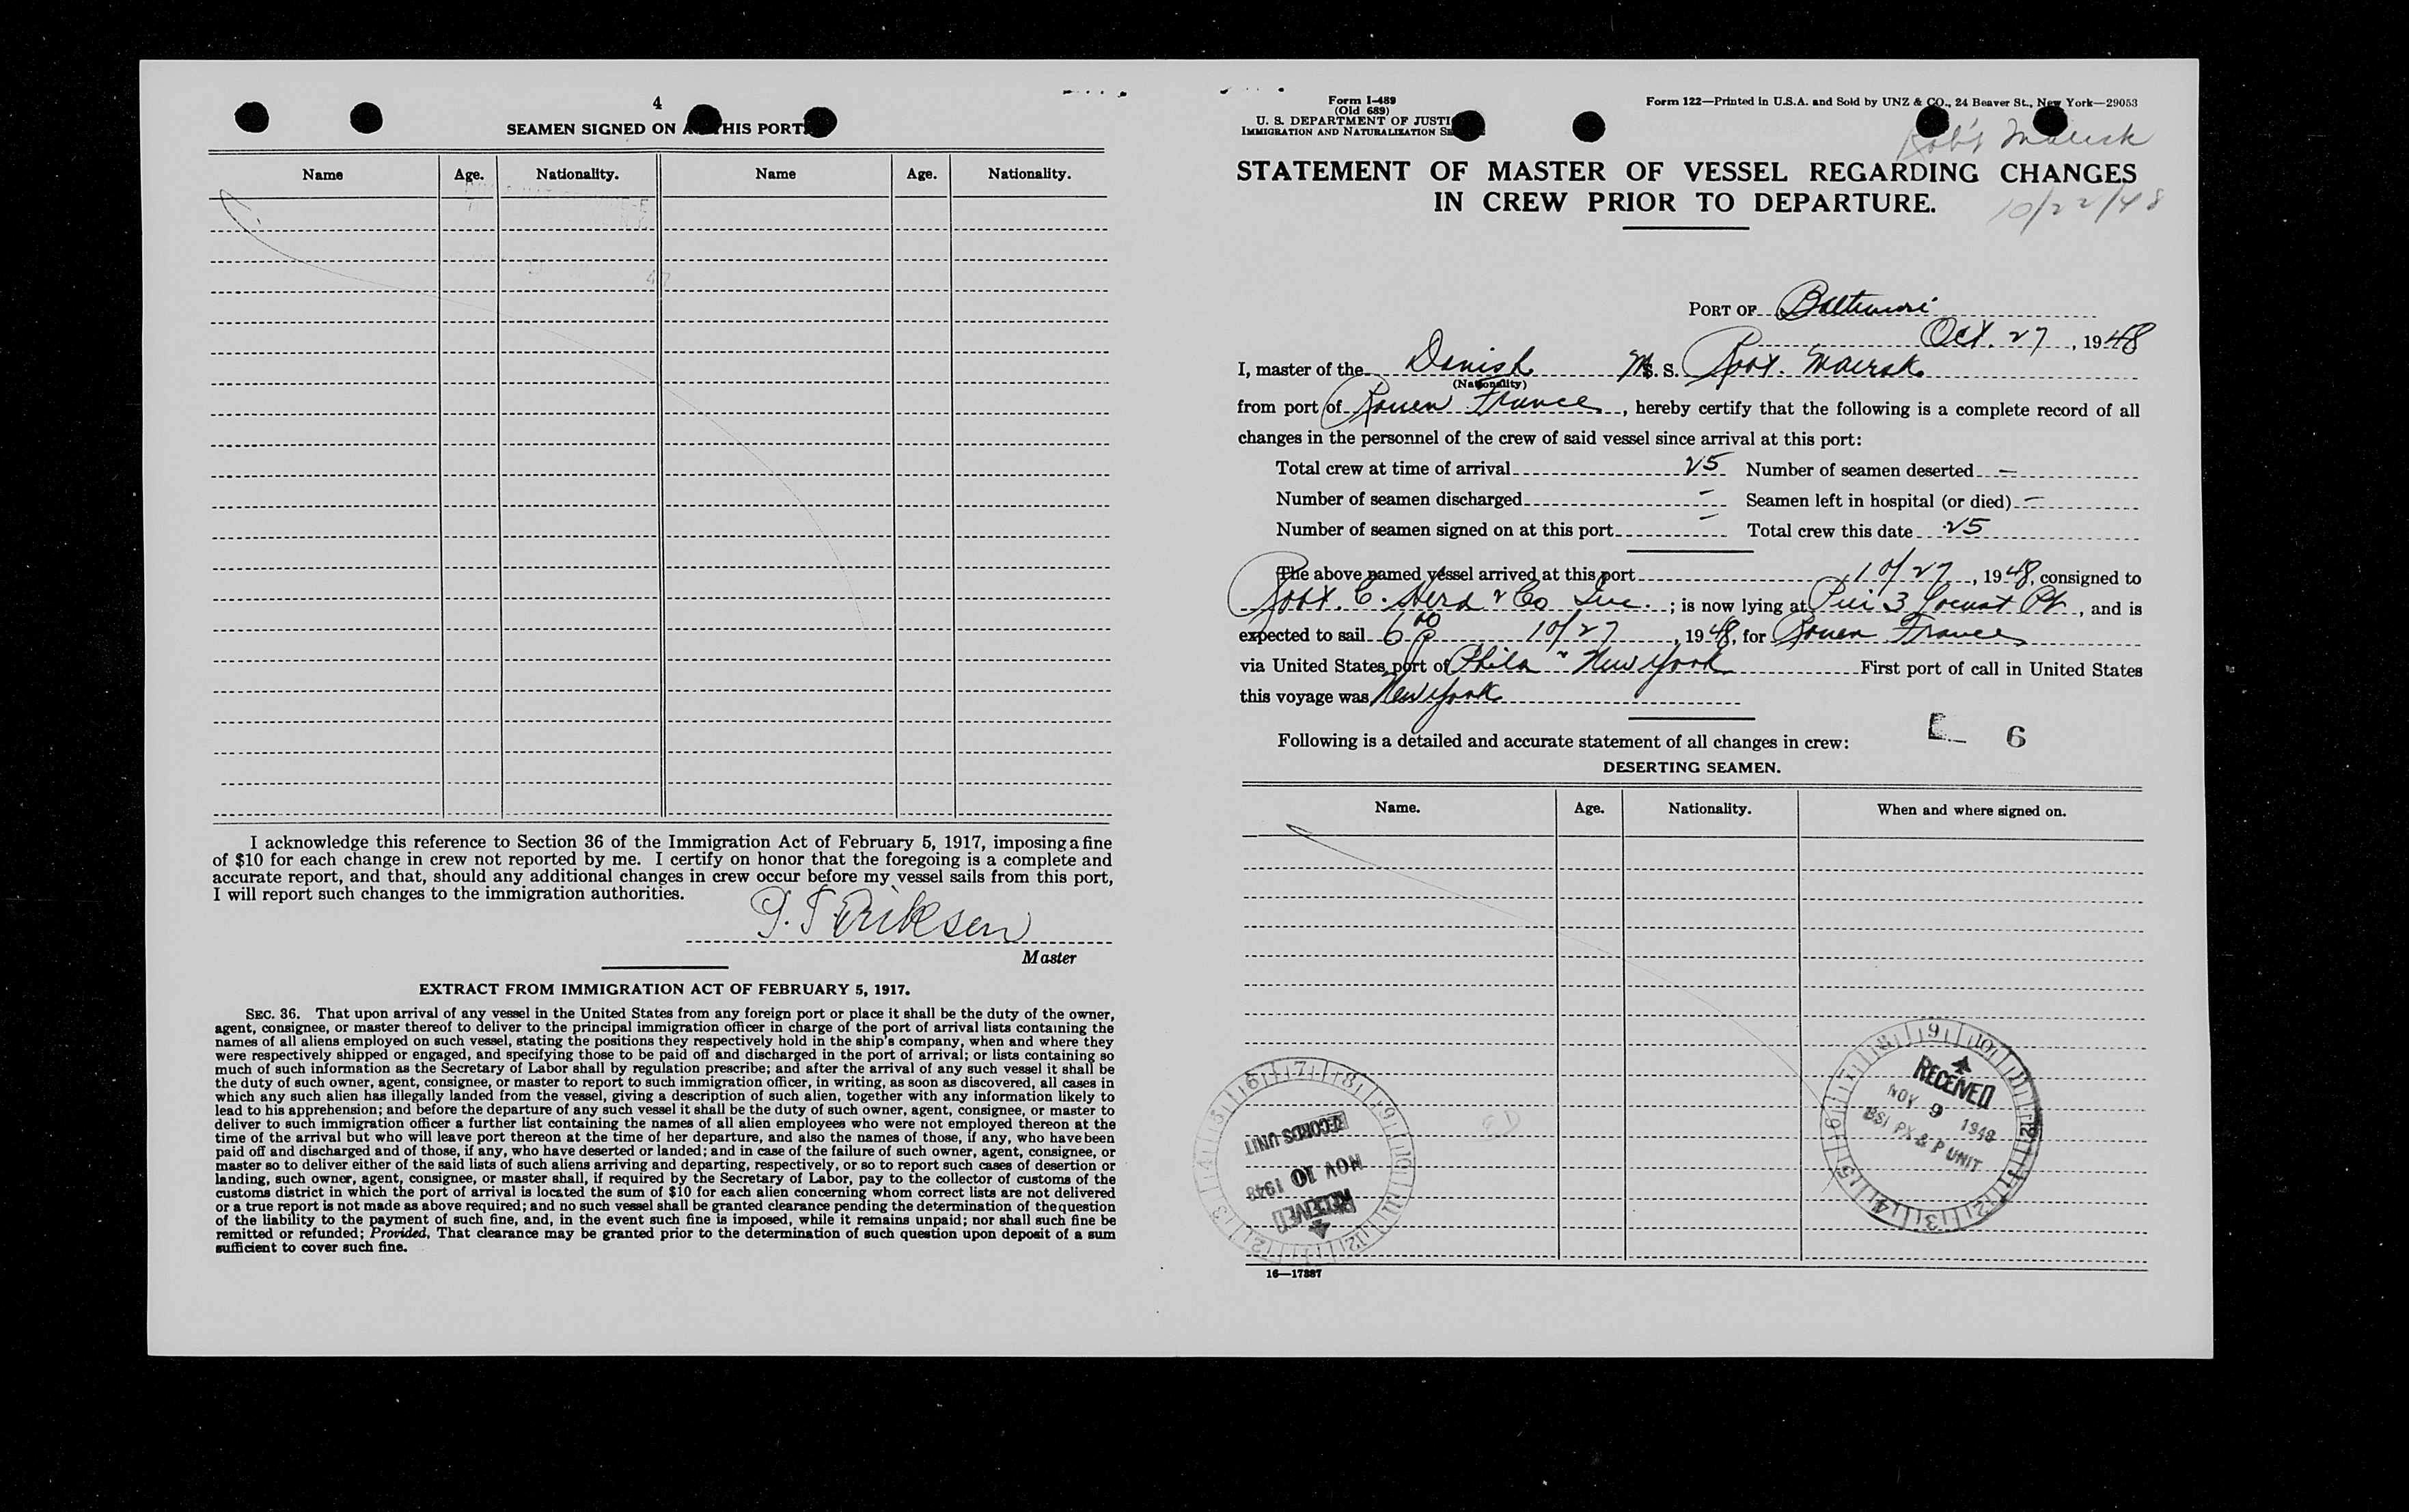 4
SEAMEN SIGNED ON HIS PORT
Name Age. Nationality. Name Age. Nationality.
I acknowledge this reference to Section 36 of the Immigration Act of February 5, 1917, imposing a fine
of $10 for each change in crew not reported by me. I certify on honor that the foregoing is a complete and
accurate report, and that, should any additional changes in crew occur before my vessel sails from this port,
I will report such changes to the immigration authorities.
Eriksen
Master
EXTRACT FROM IMMIGRATION ACT OF FEBRUARY 5, 1917.
SEC. 36. That upon arrival of any vessel in the United States from any foreign port or place it shall be the duty of the owner,
agent, consignee, or master thereof to deliver to the principal immigration officer in charge of the port of arrival lists containing the
names of all aliens employed on such vessel, stating the positions they respectively hold in the ship's company, when and where they
were respectively shipped or engaged, and specifying those to be paid off and discharged in the port of arrival; or lists containing so
much of such information as the Secretary of Labor shall by regulation prescribe; and after the arrival of any such vessel it shall be
the duty of such owner, agent, consignee, or master to report to such immigration officer, in writing, as soon as discovered, all cases in
which any such alien has illegally landed from the vessel, giving a description of such alien, together with any information likely to
lead to his apprehension; and before the departure of any such vessel it shall be the duty of such owner, agent, consignee, or master to
deliver to such immigration officer a further list containing the names of all alien employees who were not employed thereon at the
time of the arrival but who will leave port thereon at the time of her departure, and also the names of those, if any, who have been
paid off and discharged and of those, if any, who have deserted or landed; and in case of the failure of such owner, agent, consignee, or
master so to deliver either of the said lists of such aliens arriving and departing, respectively, or so to report such cases of desertion or
landing, such owner, agent, consignee, or master shall, if required by the Secretary of Labor, pay to the collector of customs of the
customs district in which the port of arrival is located the sum of $10 for each alien concerning whom correct lists are not delivered
or a true report is not made as above required; and no such vessel shall be granted clearance pending the determination of the question
of the liability to the payment of such fine, and, in the event such fine is imposed, while it remains unpaid; nor shall such fine be
remitted or refunded; Provided, That clearance may be granted prior to the determination of such question upon deposit of a sum
sufficient to cover such fine.
Form I-489
(Old 689)
U. S. DEPARTMENT OF JUSTI
IMMIGRATION AND NATURALIZATION SE
Form 122—Printed in U.S.A. and Sold by UNZ & CO., 24 Beaver St., New York—29053
Rob't Maersk
STATEMENT OF MASTER OF VESSEL REGARDING CHANGES
IN CREW PRIOR TO DEPARTURE.
10/22/48
PORT OF Baltimore
Oct. 27, 1948
I, master of the Danish M. S. Robt. Maersk
(Nationality)
from port of Rouen France, hereby certify that the following is a complete record of all
changes in the personnel of the crew of said vessel since arrival at this port:
Total crew at time of arrival 25 Number of seamen deserted —
Number of seamen discharged — Seamen left in hospital (or died) —
Number of seamen signed on at this port — Total crew this date 25
The above named vessel arrived at this port 10/27, 1948, consigned to
Robt. C. Herd & Co Inc.; is now lying at Pier 3 Locust Pt, and is
expected to sail 6 00 P 10/27, 1948, for Rouen France
via United States port of Phila & New York First port of call in United States
this voyage was New York
Following is a detailed and accurate statement of all changes in crew:
6
DESERTING SEAMEN.
Name. Age. Nationality. When and where signed on.
RECEIVED
NOV 9 1948
BSI PX & P UNIT
RECEIVED
NOV 10 1948
RECORDS UNIT
16—17887